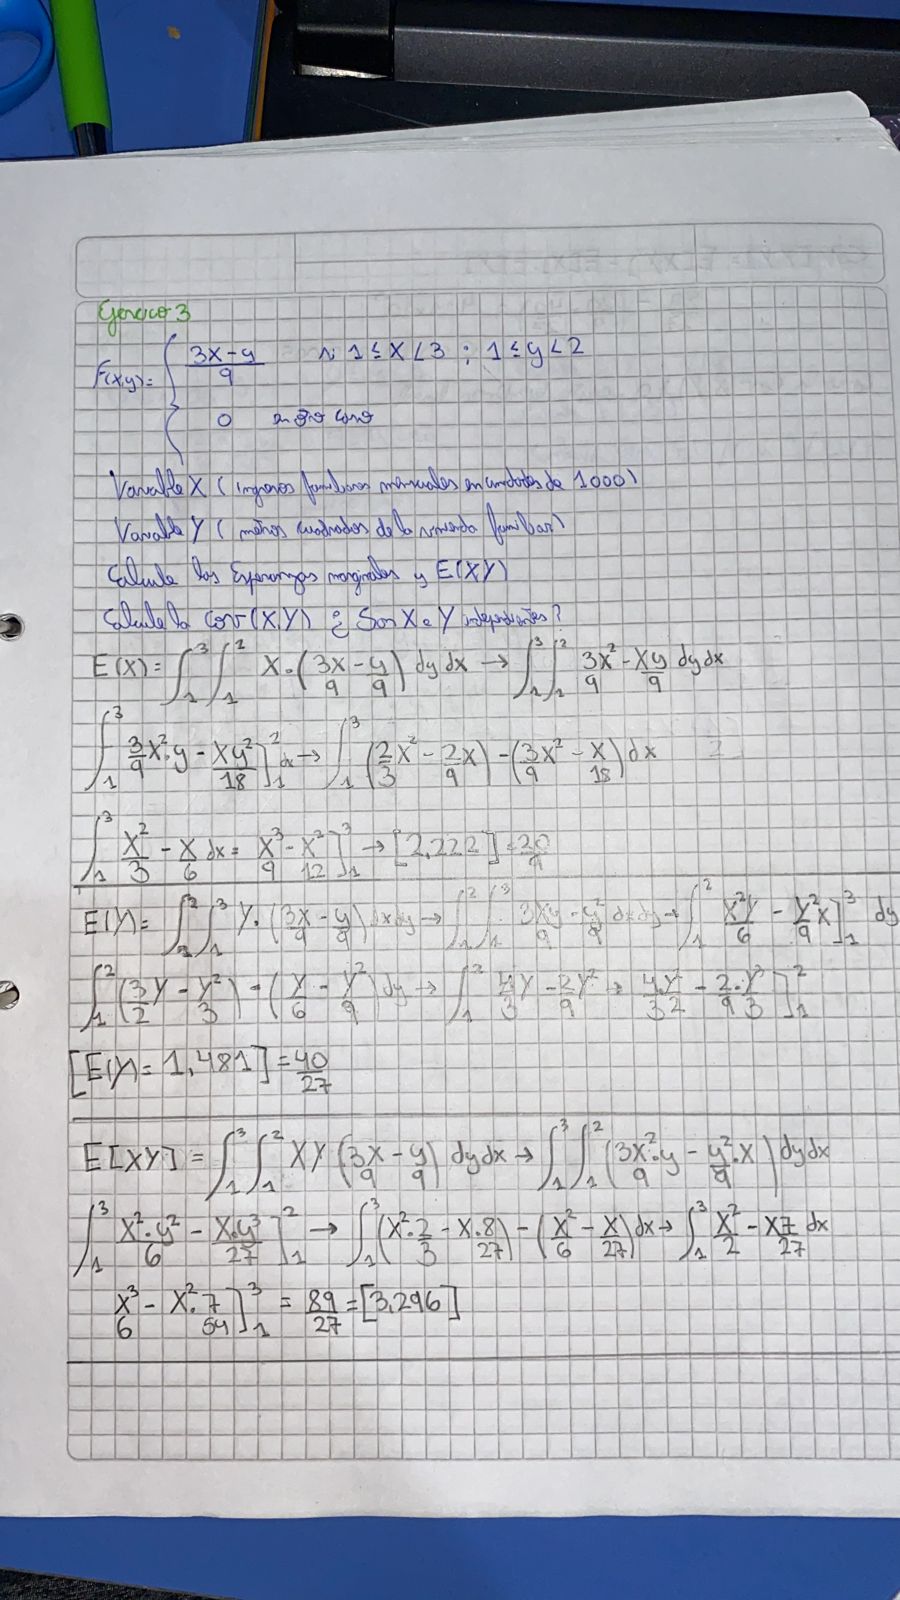 Ejercicio 3
F(x,y)= { 3x-y/9 si 1≤x<3 ; 1≤y<2
0 en otro caso
Variable X (ingresos familiares mensuales en unidades de 1000)
Variable Y (metros cuadrados de la vivienda familiar)
Calcule las Esperanzas marginales y E(XY)
Calcule la cov(X,Y) ¿Son X e Y independientes?
E(X)= ∫₁³∫₁² x·(3x/9 - y/9) dy dx → ∫₁³∫₁² 3x²/9 - xy/9 dy dx
∫₁³ 3/9 x²·y - xy²/18]₁² dx → ∫₁³ (2/3 x² - 2x/9) - (3x²/9 - x/18) dx
∫₁³ x²/3 - x/6 dx = x³/9 - x²/12]₁³ → [2,222] = 20/9
E(Y)= ∫₁²∫₁³ y·(3x/9 - y/9) dx dy → ∫₁²∫₁³ 3xy/9 - y²/9 dx dy → ∫₁² x²y/6 - y²x/9]₁³ dy
∫₁² (3/2 y - y²/3) - (y/6 - y²/9) dy → ∫₁² 4/3 y - 2/9 y² → 4/3 y²/2 - 2/9·y³/3]₁²
[E(Y)= 1,481] = 40/27
E[XY] = ∫₁³∫₁² XY (3x/9 - y/9) dy dx → ∫₁³∫₁² (3x²/9·y - y²/9·x) dy dx
∫₁³ x²·y²/6 - x·y³/27]₁² → ∫₁³ (x²·2/3 - x·8/27) - (x²/6 - x/27) dx → ∫₁³ x²/2 - x7/27 dx
x³/6 - x²·7/54]₁³ = 89/27 = [3,296]